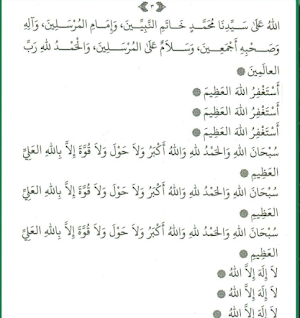 ٣
اللهُ عَلَى سَيِّدِنَا مُحَمَّدٍ خَاتَمِ النَّبِيِّينَ، وَإِمَامِ المُرْسَلِينَ، وَآلِهِ
وَصَحْبِهِ أَجْمَعِينَ، وَسَلاَمٌ عَلَى المُرْسَلِينَ، وَالْحَمْدُ للهِ رَبِّ
العالَمِينَ
أَسْتَغْفِرُ اللهَ العَظِيمَ
أَسْتَغْفِرُ اللهَ العَظِيمَ
أَسْتَغْفِرُ اللهَ العَظِيمَ
سُبْحَانَ اللهِ وَالحَمْدُ للهِ وَاللهُ أَكْبَرُ وَلاَ حَوْلَ وَلاَ قُوَّةَ إِلاَّ بِاللهِ العَلِيِّ
العَظِيمِ
سُبْحَانَ اللهِ وَالحَمْدُ للهِ وَاللهُ أَكْبَرُ وَلاَ حَوْلَ وَلاَ قُوَّةَ إِلاَّ بِاللهِ العَلِيِّ
العَظِيمِ
سُبْحَانَ اللهِ وَالحَمْدُ للهِ وَاللهُ أَكْبَرُ وَلاَ حَوْلَ وَلاَ قُوَّةَ إِلاَّ بِاللهِ العَلِيِّ
العَظِيمِ
لاَ إِلَهَ إِلاَّ اللهُ
لاَ إِلَهَ إِلاَّ اللهُ
لاَ إِلَهَ إِلاَّ اللهُ